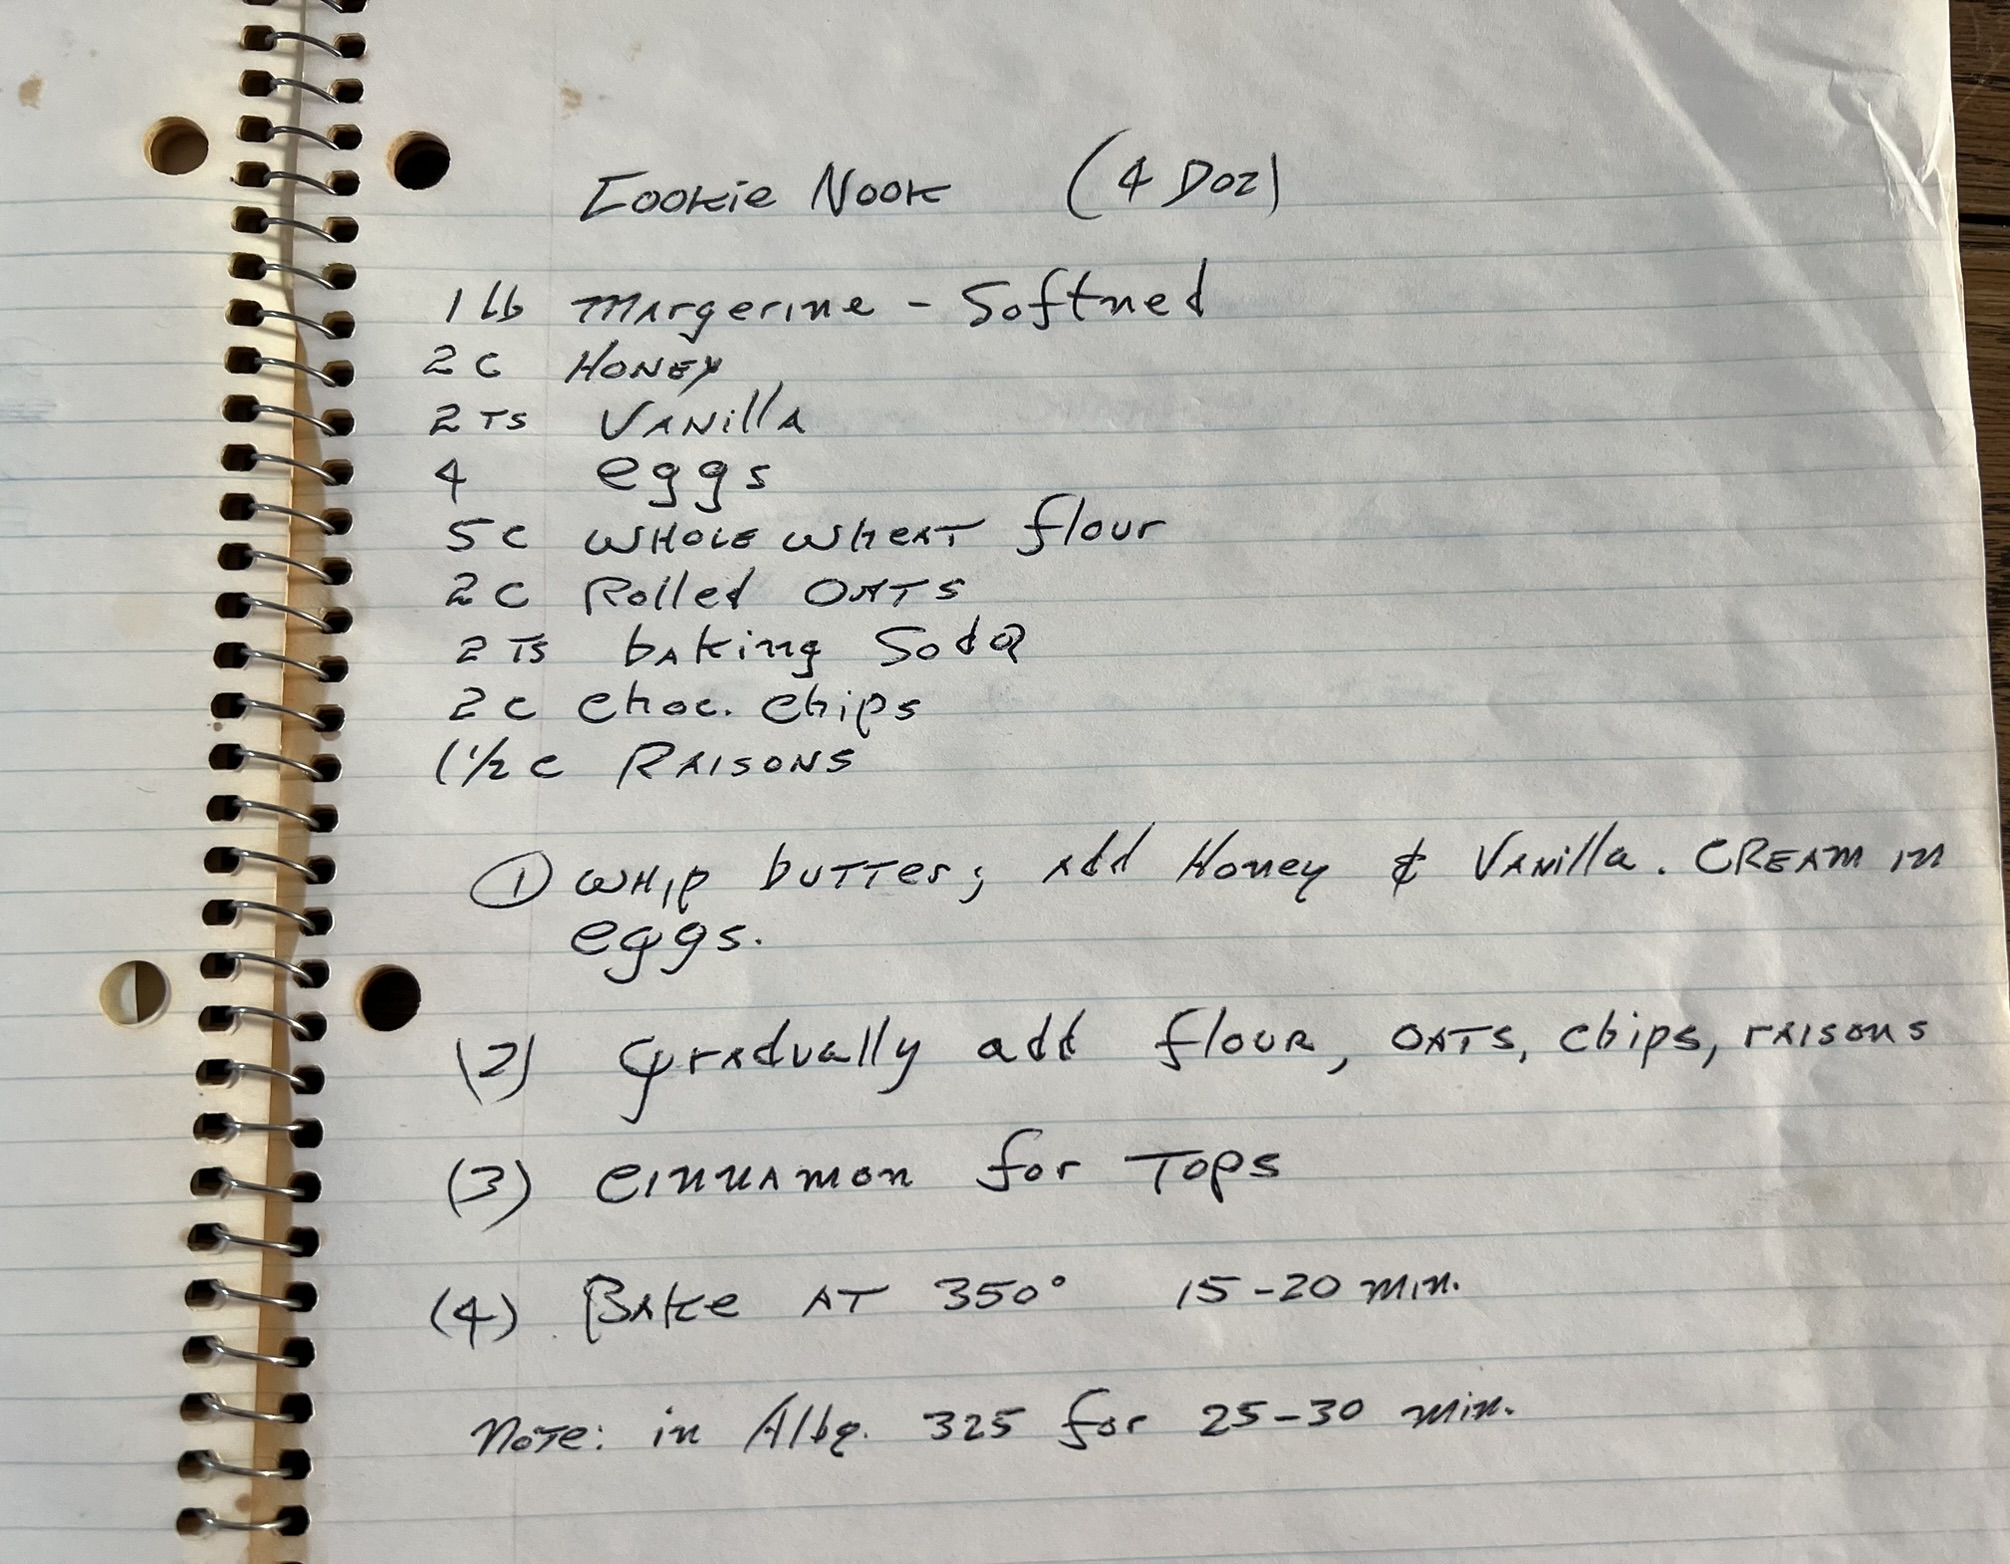 Cookie Nook (4 Doz)
1 lb Margerine - Softned
2 C Honey
2 TS Vanilla
4 eggs
5 c Whole wheat flour
2 C Rolled OATS
2 TS baking Soda
2 c choc. chips
(1/2 c RAISONS
① Whip butter; add Honey & Vanilla. CREAM in
eggs.
(2) Gradually add flour, OATS, chips, raisons
(3) Cinnamon for Tops
(4) Bake AT 350° 15-20 min.
Note: in Albq. 325 for 25-30 min.